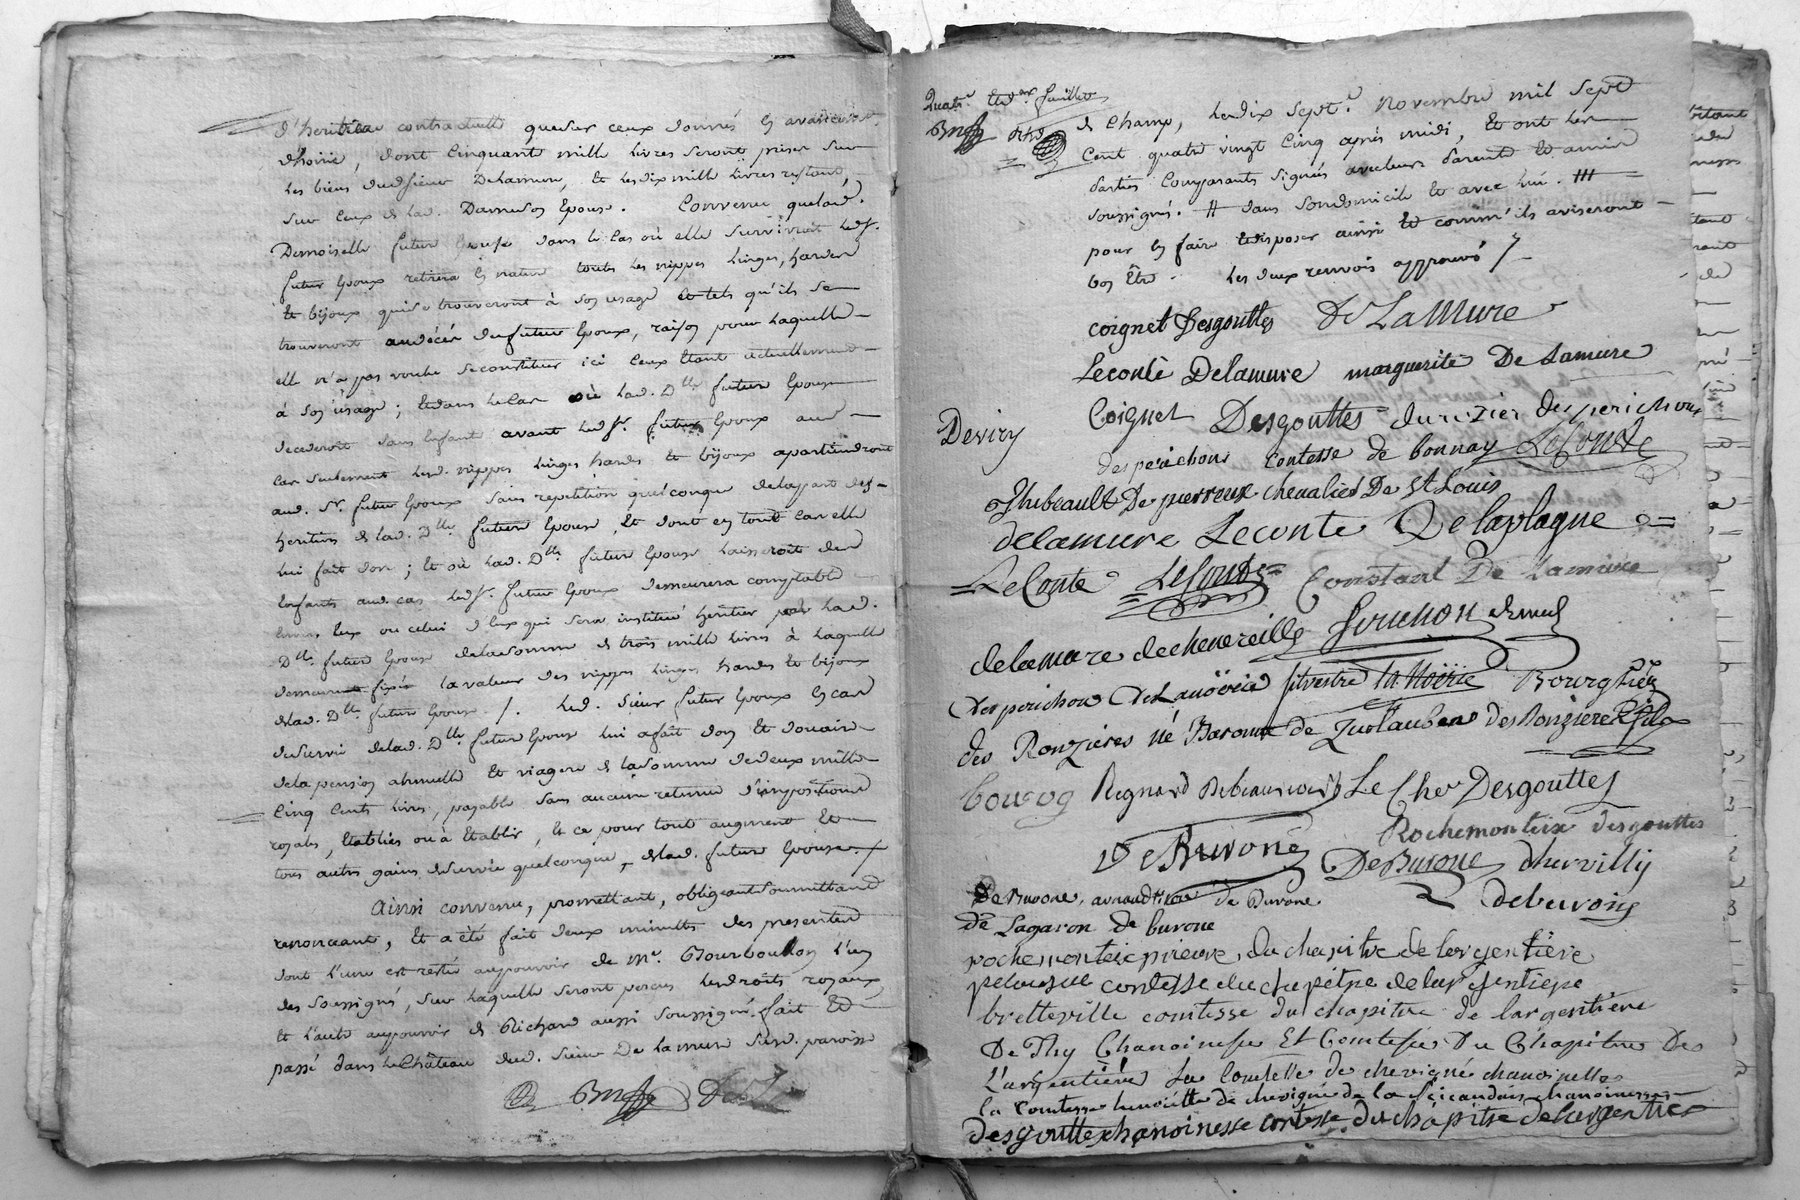 d'heritiere contractuelle que sur ceux donnés en avancement
d'hoirie, dont Cinquante mille livres seront prises sur
les biens dudsieur Delamure, et lesdix mille livres restant,
sur Ceux de lad. Dame son Epouse. Convenu quelad.
Demoiselle future Epouse dans le Cas où elle survivroit leds.r
futur Epoux retirera en nature toutes les nippes linges, hardes
et bijoux qui se trouveront à son usage et tels qu'ils se
trouveront audécés dufutur Epoux, raison pour laquelle
elle n'a pas voulu se constituer ici Ceux Etant actuellement
à son usage; et dans le Cas où lad. Dlle future Epouse
decederoit sans Enfants avant leds.r futur Epoux aud.
Cas seulement lesd. nippes linges hardes et bijoux apartiendront
aud. Sr. futur Epoux sans repetition quelconque de la part des
heritiers de lad. Dlle future Epouse, Et dont en tout Cas elle
lui fait don; et où lad. Dlle future Epouse laisseroit des
Enfants aud. cas leds.r futur Epoux demeurera comptable
Envers Eux ou celui d'Eux qui sera institué heritier par lad.
Dlle. future Epouse de la somme de trois mille livres à laquelle
demeure fixée la valeur des nippes linges hardes et bijoux
de lad. Dlle future Epouse /. Led. Sieur futur Epoux En cas
de survie de lad. Dlle future Epouse lui a fait don et douaire
de la pension annuelle et viagere de la somme de deux mille
Cinq Cents livres, payable sans aucune retenue d'impositions
royales, Etablies ou à Etablir, et ce pour tout augment et
tous autres gains de survie quelconque, de lad. future Epouse. /
Ainsi convenu, promettant, obligeant soumettant
renonceant, Et a été fait deux minutes des presentes
dont l'une est restée au pouvoir de Me. Bourboullon l'un
des soussigné, sur laquelle seront perçus les droits royaux,
et l'autre au pouvoir de Richard aussi soussigné. fait et
passé dans le Château dud. sieur De lamure susd. paroisse
feuillet
de Champ, le dix sept.e Novembre mil sept
Cent quatre vingt Cinq après midi, Et ont les
parties Comparants signés avec leurs parents et amis
soussignés. # dans son domicile et avec lui. ///
pour En faire et disposer ainsi et comm'ils aviseront
bon être. les deux renvois approuvés /
coignet Desgouttes De LaMure
Leconte Delamure marguerite De Lamure
Deviry Coignet Desgouttes durozier desperichons
desperichons contesse de bonnay LeConte
Thibeault De pierreux chevalier De St Louis
delamure Leconte Delaplagne
LeConte LeConte Constant De Lamure
delamure de chenereille Souchon
desperichon silvestre la Noërie Bourgheu
des Ronzieres né Baronne de Zurlauben des Ronzieres fils
bourog Regnard Le Cher Desgouttes
De Buronne Rochemonteix desgouttes
De Burone dhervilly
De Burone, de Burone deburong
De Lagaron de burone
rochemonteix prieure, du chapitre de largentière
pelousse contesse du chapitre de largentiere
bretteville comtesse du chapitre de largentière
De Thy Chanoinesse Et Comtesse Du Chapitre Des
L'argentière La Comtesse de chevigné chanoinesse
la comtesse henriette de chevigné de la chanoinesse
desgoutte chanoinesse contesse du chapitre de largentier